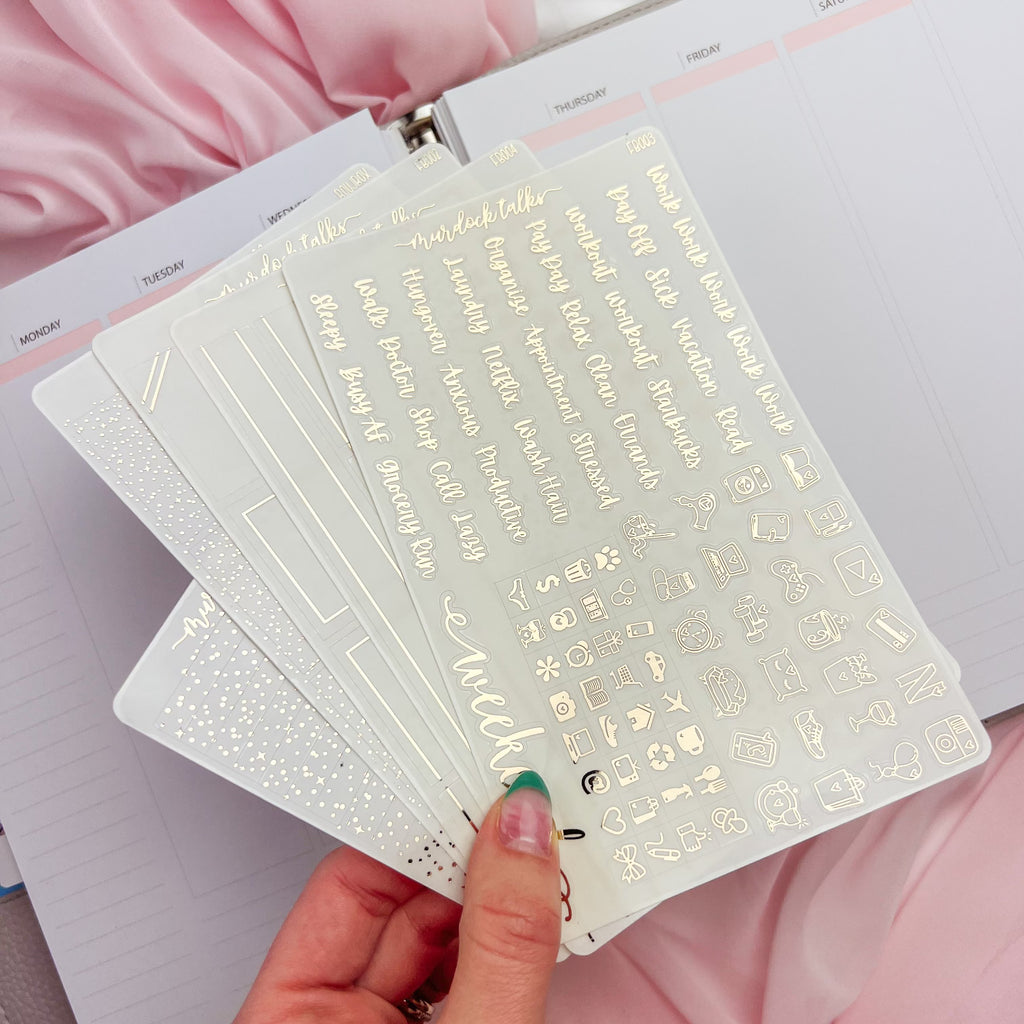 MONDAY
TUESDAY
THURSDAY
FRIDAY
FB002
FB004
FB003
murdock talks
murdock talks
Work Work Work Work Work Work
Day Off Sick Vacation Read
Workout Workout Starbucks
Pay Day Relax Clean Errands
Organize Appointment Stressed
Laundry Netflix Wash Hair
Hungover Anxious Productive
Walk Doctor Shop Call Lazy
Sleepy Busy AF Grocery Run